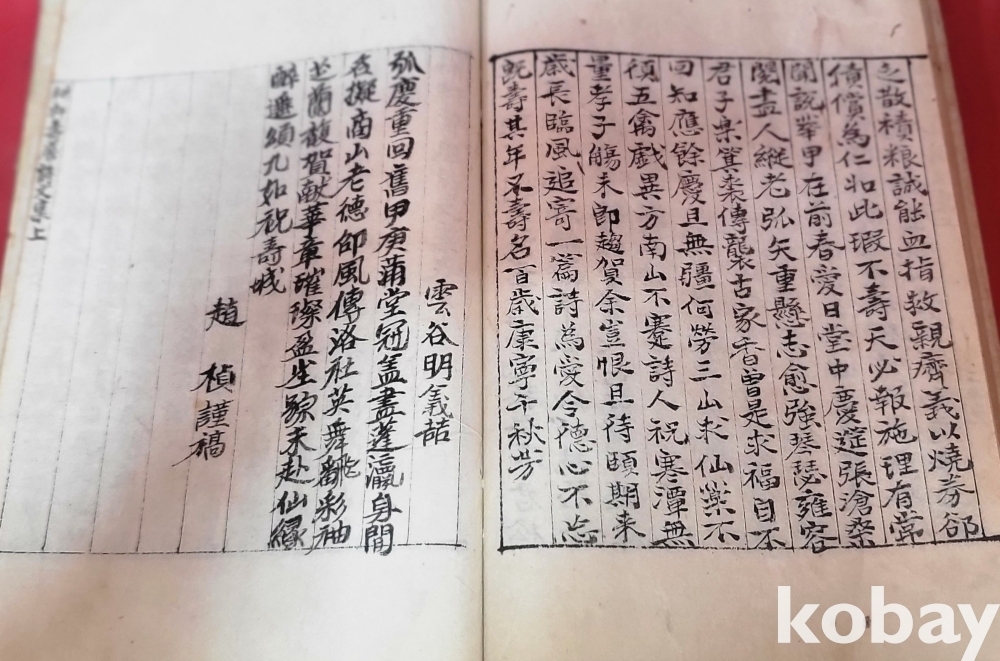 之散積粮誠能血指救親癠義以燒券郤
債償為仁如此瑕不壽天必報施理有常
聞說舉甲在前春愛日堂中慶筵張滄桑
閱盡人縱老弧矢重懸志愈強琴瑟雍容
君子樂箕裘傳襲古家香曾是求福自不
回知應餘慶且無疆何勞三山求仙藥不
須五禽戱異方南山不騫詩人祝寒潭無
量孝子觴未即趨賀余豈恨且待頤期来
歲長臨風追寄一篇詩為愛令德心不忘
旣壽其年又壽名百歲康寧千秋芳
雲谷明義喆
弧慶重回舊甲庚蒲堂冠盖盡蓬瀛身閒
宜擬商山老德卲風傳洛社英舞翻彩袖
芝蘭馥賀獻華章璀璨盈坐蘇未赴仙緣
醉遙頌九如祝壽城
趙 楨謹稿
壽詩文集上
kobay